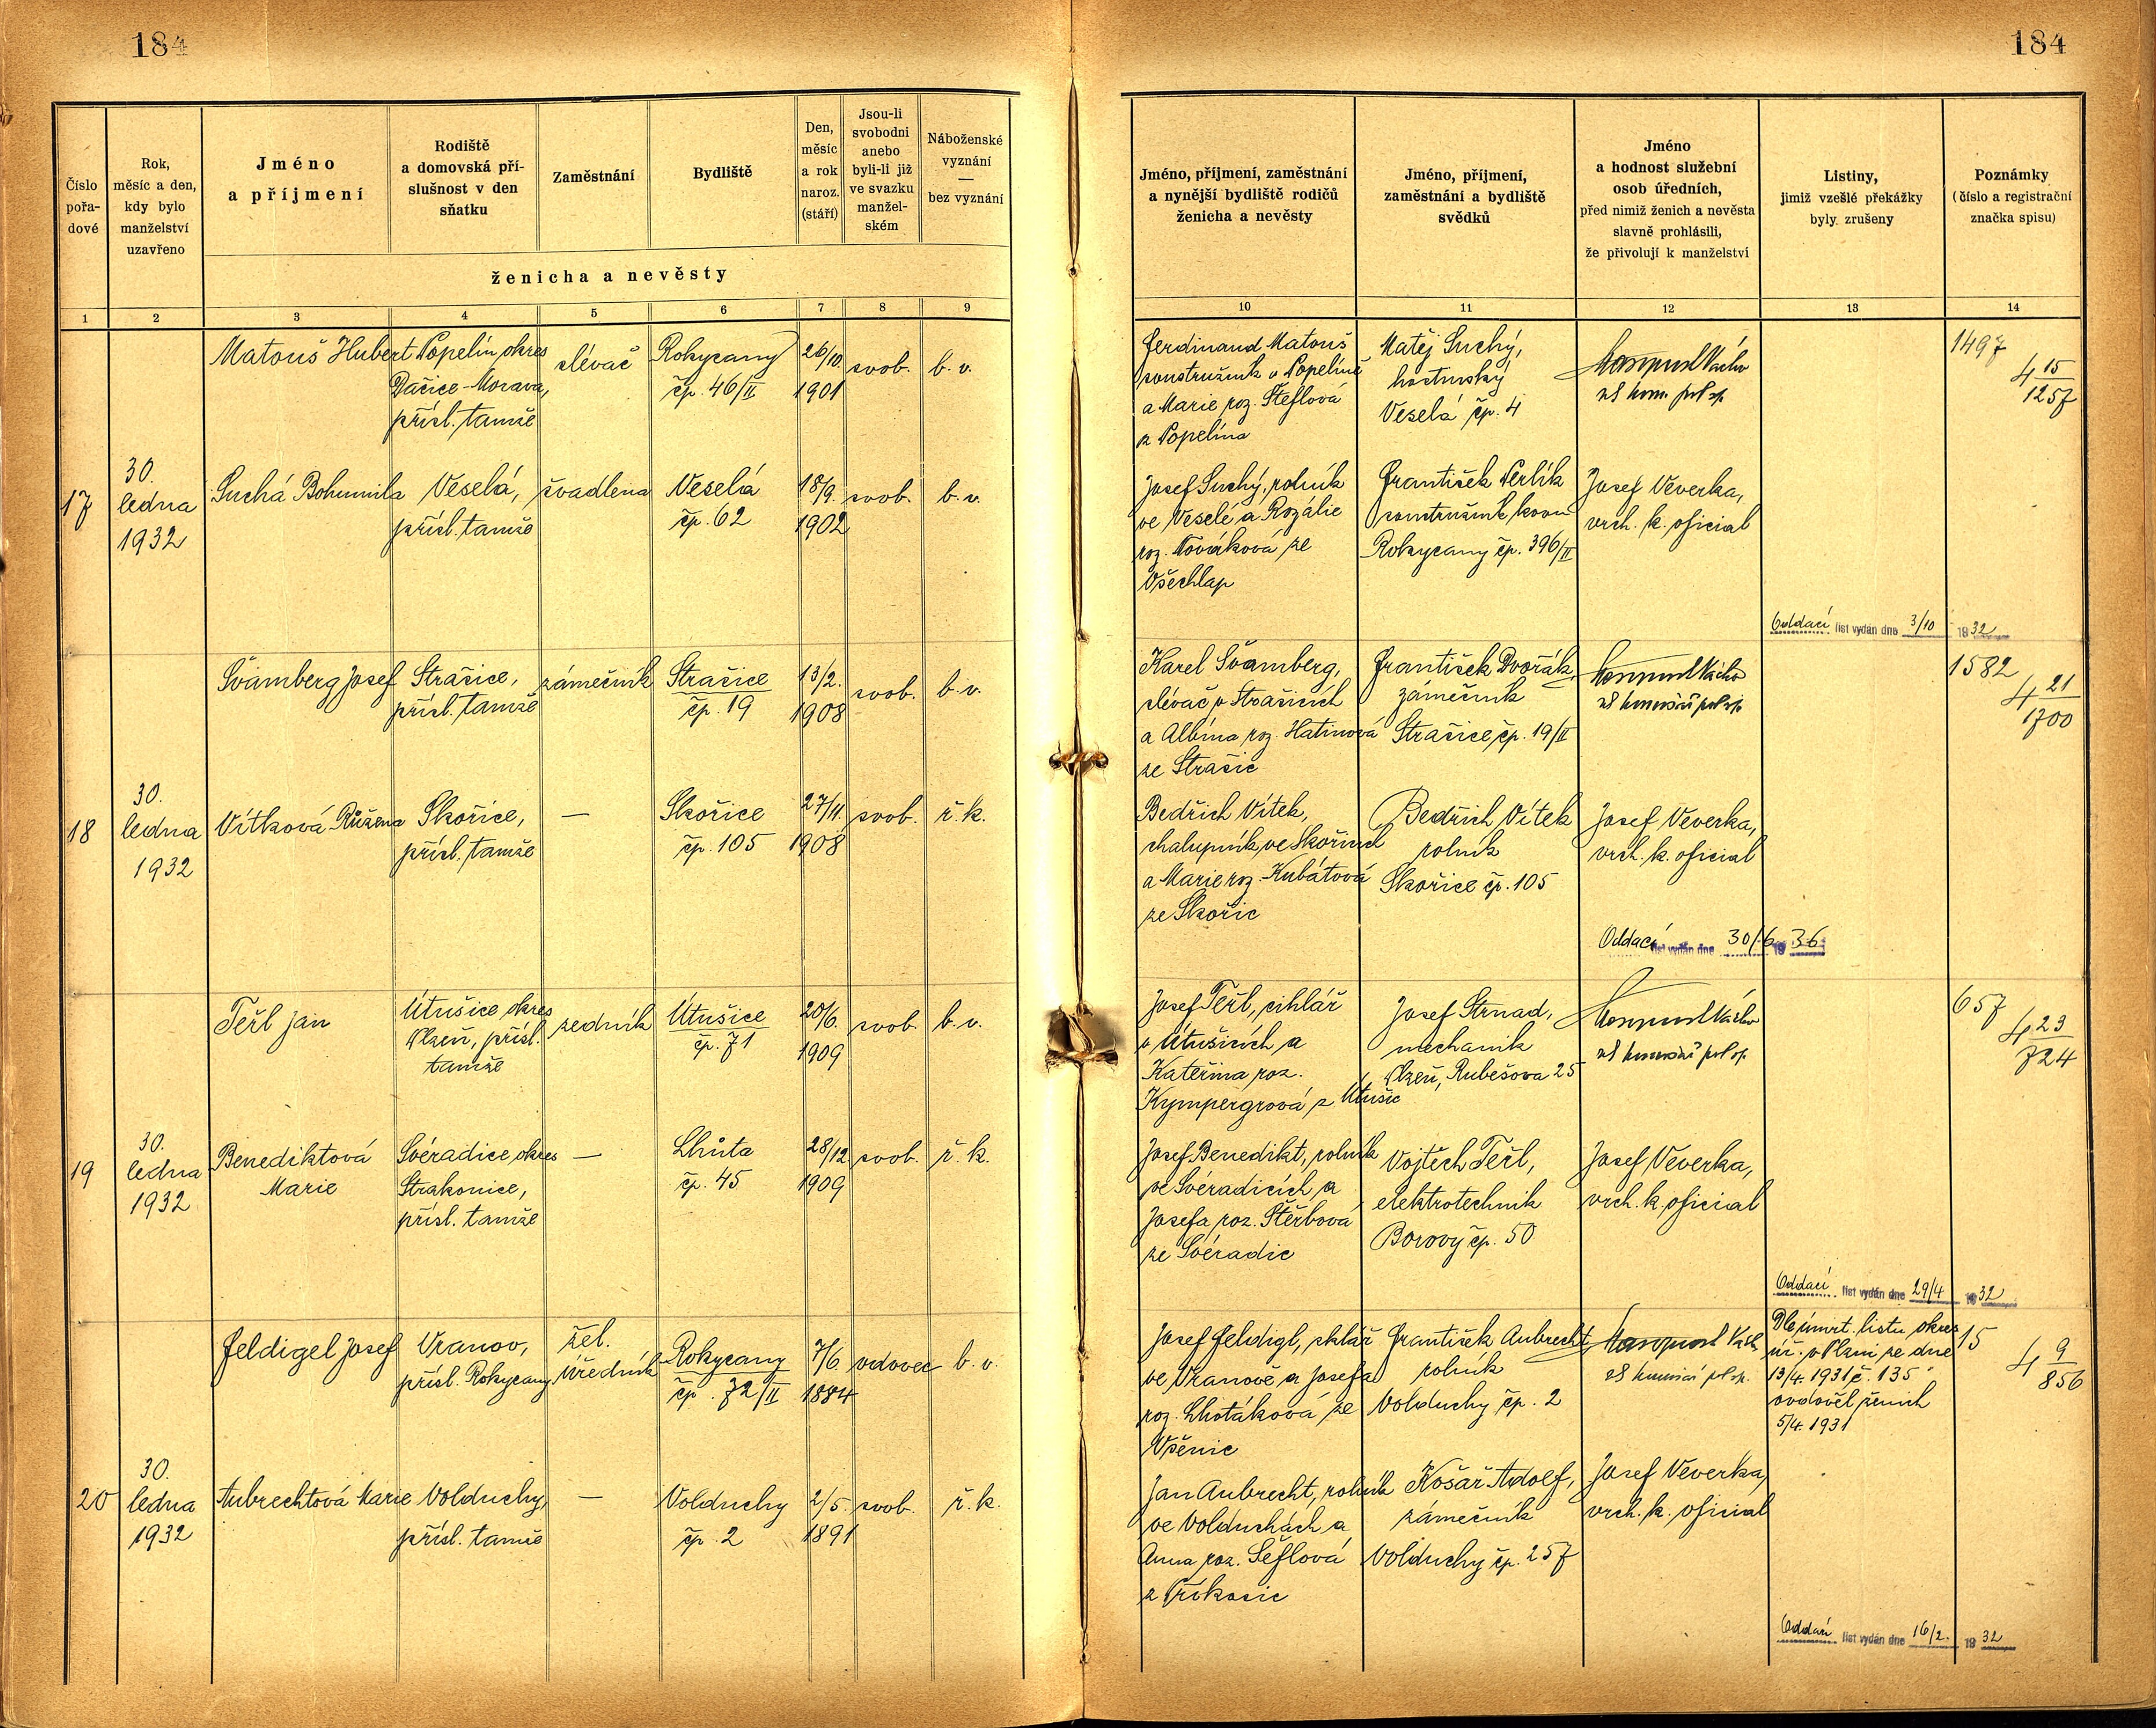 184
184
Číslo
pořa-
dové
Rok,
měsíc a den,
kdy bylo
manželství
uzavřeno
Jméno
a příjmení
Rodiště
a domovská pří-
slušnost v den
sňatku
Zaměstnání
Bydliště
Den,
měsíc
a rok
naroz.
(stáří)
Jsou-li
svobodni
anebo
byli-li již
ve svazku
manžel-
ském
Náboženské
vyznání
—
bez vyznání
ženicha a nevěsty
Jméno, příjmení, zaměstnání
a nynější bydliště rodičů
ženicha a nevěsty
Jméno, příjmení,
zaměstnání a bydliště
svědků
Jméno
a hodnost služební
osob úředních,
před nimiž ženich a nevěsta
slavně prohlásili,
že přivolují k manželství
Listiny,
jimiž vzešlé překážky
byly zrušeny
Poznámky
(číslo a registrační
značka spisu)
1 2 3 4 5 6 7 8 9
10 11 12 13 14
17
30.
ledna
1932
Matouš Hubert
Popelín okres
Dačice-Morava,
přísl. tamže
slévač
Rokycany
čp. 46/II
26/10.
1901
svob.
b. v.
Suchá Bohumila
Veselá,
přísl. tamže
švadlena
Veselá
čp. 62
18/9.
1902
svob.
b. v.
Ferdinand Matouš
soustružník v Popelíně
a Marie roz. Šteflová
z Popelína
Matěj Suchý,
hostinský
Veselá čp. 4
1497
4 15/1257
Josef Suchý, rolník
ve Veselé a Rozálie
roz. Nováková ze
Všechlap
František Perlík
soustružník kovů
Rokycany čp. 396/II
Josef Veverka,
vrch. k. oficial
Oddací list vydán dne 3/10 1932
18
30.
ledna
1932
Švamberg Josef
Strašice,
přísl. tamže
zámečník
Strašice
čp. 19
13/2.
1908
svob.
b. v.
Vítková Růžena
Skořice,
přísl. tamže
—
Skořice
čp. 105
27/11.
1908
svob.
ř. k.
Karel Švamberg,
slévač v Strašicích
a Albína roz. Hatinová
ze Strašic
František Dvořák,
zámečník
Strašice čp. 19/II
1582
4 21/1700
Bedřich Vítek,
chalupník, ve Skořicích
a Marie roz. Kubátová
ze Skořic
Bedřich Vítek
rolník
Skořice čp. 105
Josef Veverka,
vrch. k. oficial
Oddací list vydán dne 30/6 1936
19
30.
ledna
1932
Teřl Jan
Útušice, okres
Plzeň, přísl.
tamže
zedník
Útušice
čp. 71
20/6.
1909
svob.
b. v.
Benediktová
Marie
Svéradice okres
Strakonice,
přísl. tamže
—
Lhůta
čp. 45
28/12
1909
svob.
ř. k.
Josef Teřl, cihlář
v Útušicích a
Kateřina roz.
Kympergrová z Útušic
Josef Strnad,
mechanik
Plzeň, Rubešova 25
657
4 23/724
Josef Benedikt, rolník
ve Svéradicích a
Josefa roz. Štěrbová
ze Svéradic
Vojtěch Teřl,
elektrotechnik
Borovy čp. 50
Josef Veverka,
vrch. k. oficial
Oddací list vydán dne 29/4 1932
20
30.
ledna
1932
Feldigel Josef
Vranov,
přísl. Rokycany
žel.
úředník
Rokycany
čp. 72/II
7/6.
1884
vdovec
b. v.
Aubrechtová Marie
Volduchy,
přísl. tamže
—
Volduchy
čp. 2
2/5.
1891
svob.
ř. k.
Josef Feldigl, sklář
ve Vranově a Josefa
roz. Lhotáková ze
Všenic
František Aubrecht
rolník
Volduchy čp. 2
Dle úmrt. listu okres
úř. v Plzni ze dne
13/4. 1931 č. 135
ovdověl ženich
5/4. 1931
15
4 9/856
Jan Aubrecht, rolník
ve Volduchách a
Anna roz. Šeflová
z Příkosic
Košař Adolf,
zámečník
Volduchy čp. 257
Josef Veverka,
vrch. k. oficial
Oddací list vydán dne 16/2. 1932